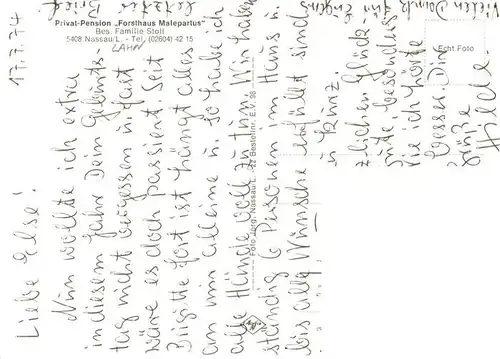 Privat-Pension „Forsthaus Malepartus"
Bes. Familie Stoll
5408 Nassau/L. - Tel. (02604) 42 15
LAHN
Echt Foto
Foto Jörg, Nassau/L. - 22 Bestellnr. E.V. 98
17.7.74
Liebe Else!
Nun wollte ich extra
in diesem Jahr Dein Geburts-
tag nicht vergessen u. fast
wäre es doch passiert. Seit
Brigitte fort ist hängt alles
an mir alleine u. so habe ich
alle Hände voll zu tun. Wir haben
ständig 6 Personen im Haus u.
bis alle Wünsche erfüllt sind
Vielen Dank für
letzter Brief
zlichen Glück
besonders
Besser. Dir
Grüße
Hilde.